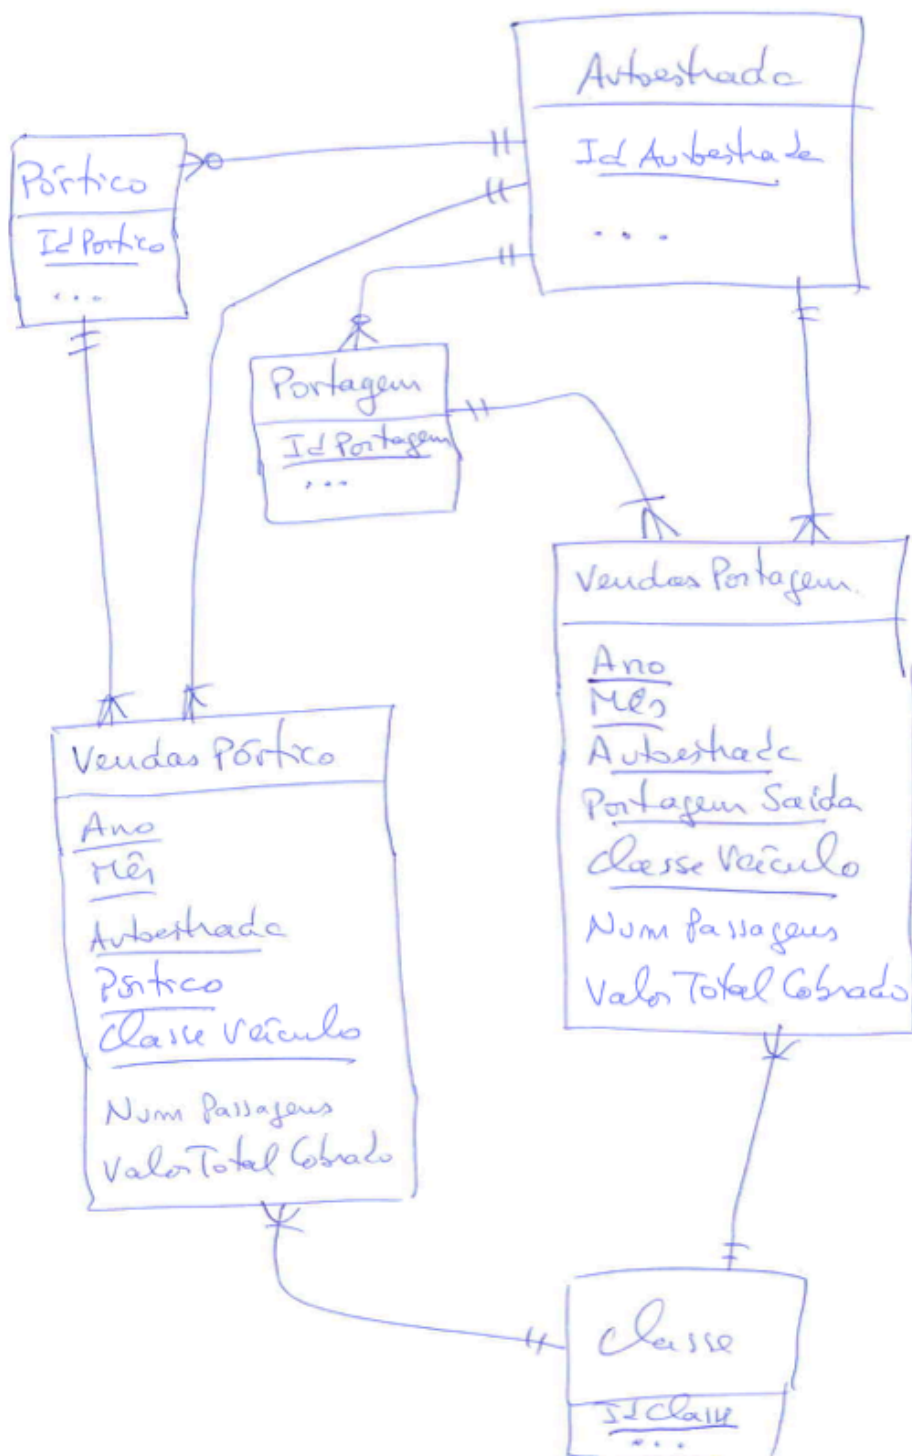 Autoestrada
Id Autoestrada
...
Pórtico
Id Portico
...
Portagem
Id Portagem
...
Vendas Portagem
Ano
Mês
Autoestrada
Portagem Saída
Classe Veículo
Num Passagens
Valor Total Cobrado
Vendas Pórtico
Ano
Mês
Autoestrada
Pórtico
Classe Veículo
Num Passagens
Valor Total Cobrado
Classe
Id Classe
...